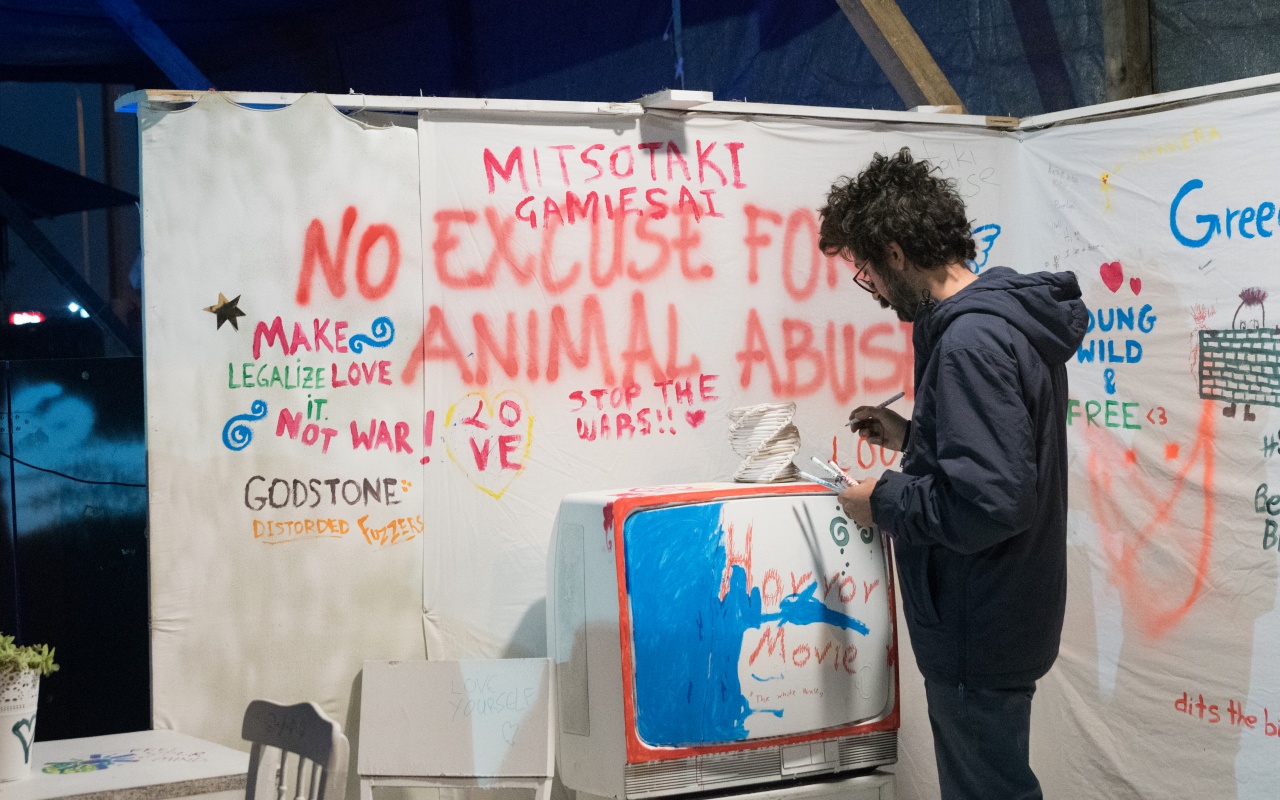 MITSOTAKI
GAMIESAI
NO EXCUSE FOR
ANIMAL ABUSE
MAKE
LEGALIZE LOVE
IT.
NOT WAR!
LO
VE
STOP THE
WARS!!
GODSTONE
DISTORDED FUZZERS
Horror
Movie
"The white House"
LOVE
YOURSELF
Gree
YOUNG
WILD
&
FREE <3
dits the b